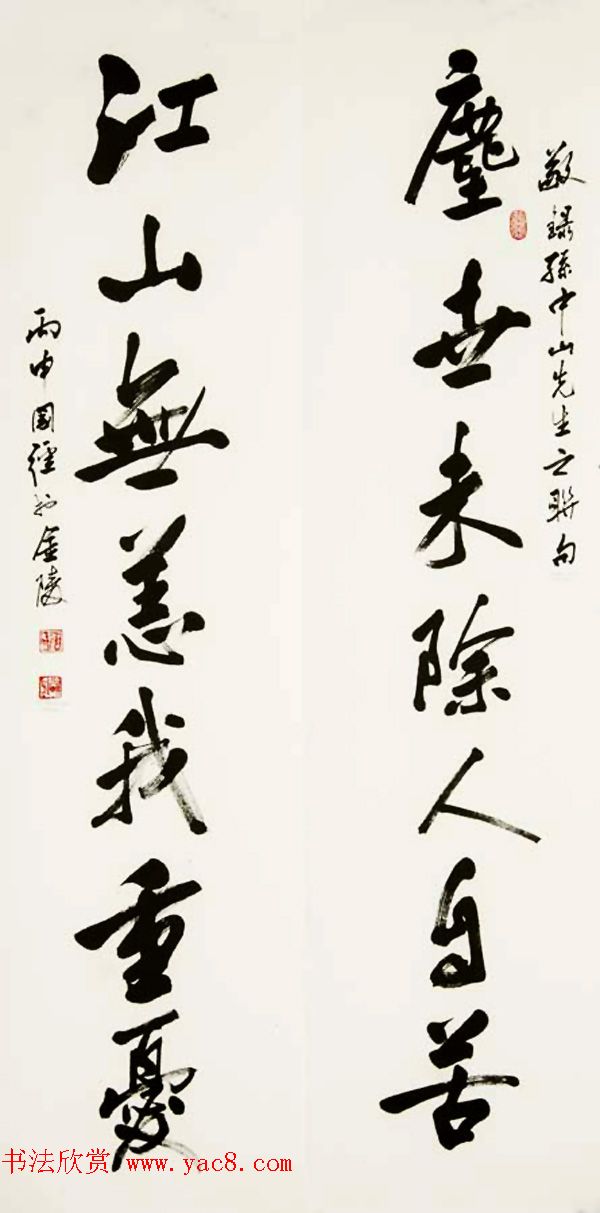 敬録孫中山先生之聯句
塵世未除人自苦
江山無恙我重憂
丙申國經於金陵
书法欣赏 www.yac8.com